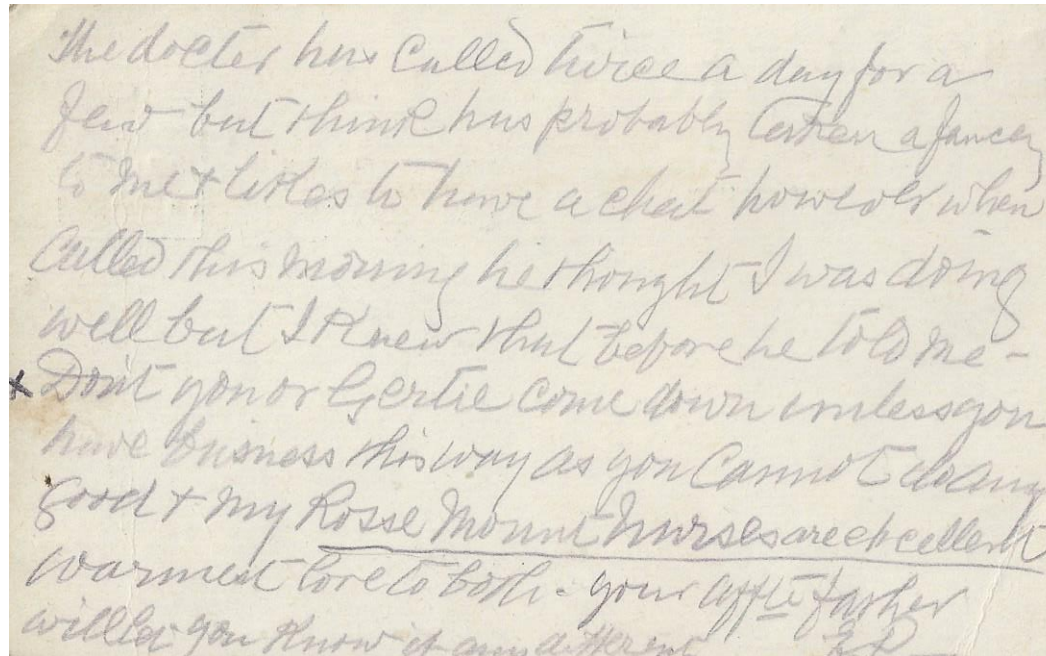 The docter has called twice a day for a
few but think has probably taken a fancy
to me & likes to have a chat however when
called this morning he thought I was doing
well but I knew that before he told me -
x Dont you or Gertie come down unless you
have business this way as you cannot do any
good & my Rosse Mount Nurses are excellent
warmest love to both - your affte father
will let you know if any different